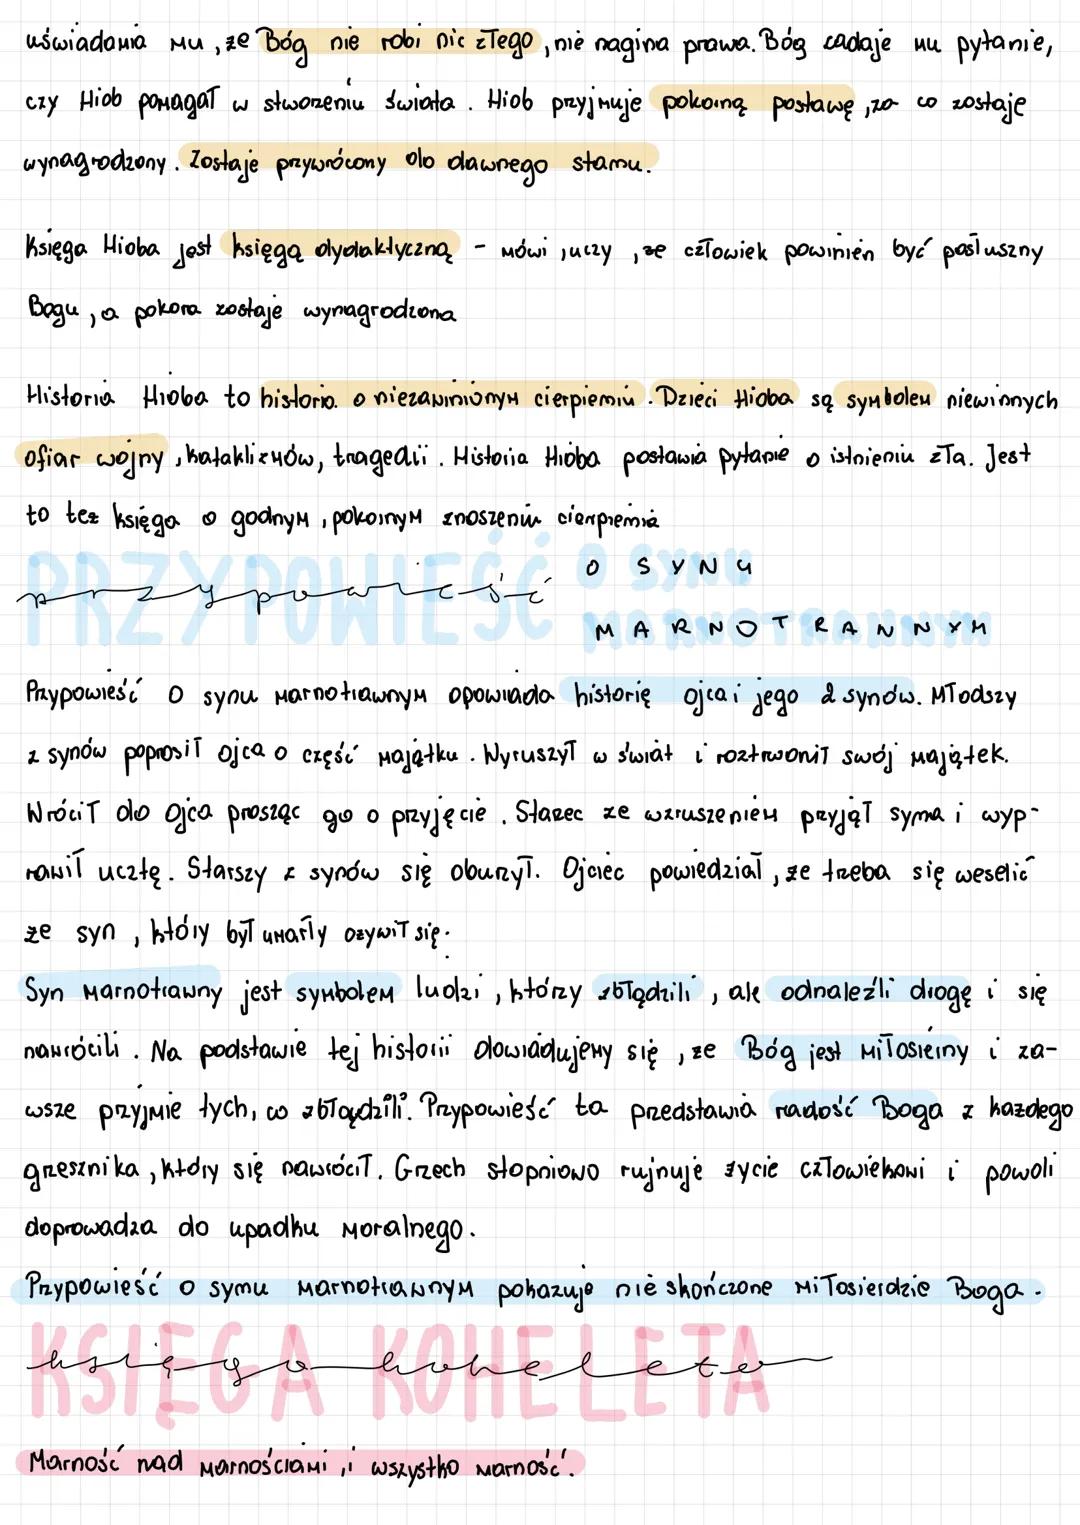 uświadamia mu, że Bóg nie robi nic złego, nie nagina prawa. Bóg zadaje mu pytanie,
czy Hiob pomagał w stworzeniu świata. Hiob przyjmuje pokorną postawę, za co zostaje
wynagrodzony. Zostaje przywrócony do dawnego stanu.
Księga Hioba jest księgą dydaktyczną - mówi, uczy, że człowiek powinien być posłuszny
Bogu, a pokora zostaje wynagrodzona
Historia Hioba to historia o niezawinionym cierpieniu. Dzieci Hioba są symbolem niewinnych
ofiar wojny, kataklizmów, tragedii. Historia Hioba postawia pytanie o istnieniu zła. Jest
to też księga o godnym, pokornym znoszeniu cierpienia
PRZYPOWIEŚĆ O SYNU
przypowieść O SYNU
MARNOTRAWNYM
MARNOTRAWNYM
Przypowieść o synu marnotrawnym opowiada historię ojca i jego 2 synów. Młodszy
z synów poprosił ojca o część majątku. Wyruszył w świat i roztrwonił swój majątek.
Wrócił do ojca prosząc go o przyjęcie. Starzec ze wzruszeniem przyjął syna i wyp-
rawił ucztę. Starszy z synów się oburzył. Ojciec powiedział, że trzeba się weselić
że syn, który był umarły ożywił się.
Syn marnotrawny jest symbolem ludzi, którzy zbłądzili, ale odnaleźli drogę i się
nawrócili. Na podstawie tej historii dowiadujemy się, że Bóg jest miłosierny i za-
wsze przyjmie tych, co zbłądzili. Przypowieść ta przedstawia radość Boga z każdego
grzesznika, który się nawrócił. Grzech stopniowo rujnuje życie człowiekowi i powoli
doprowadza do upadku moralnego.
Przypowieść o synu marnotrawnym pokazuje nieskończone miłosierdzie Boga.
KSIĘGA KOHELETA
księga koheleta
Marność nad marnościami, i wszystko marność.